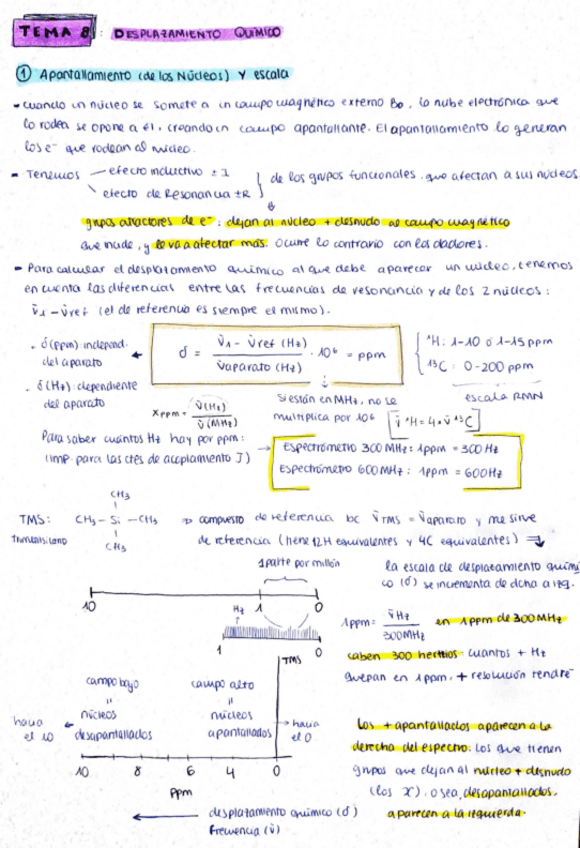 TEMA 8 : DESPLAZAMIENTO QUÍMICO
① Apantallamiento (de los Núcleos) y escala
- Cuando un núcleo se somete a un campo magnético externo Bo, la nube electrónica que
lo rodea se opone a él, creando un campo apantallante. El apantallamiento lo generan
los e⁻ que rodean al núcleo.
- Tenemos efecto inductivo ± I de los grupos funcionales, que afectan a sus núcleos
efecto de Resonancia ±R
grupos atractores de e⁻: dejan al núcleo + desnudo al campo magnético
que incide, y le va a afectar más. Ocurre lo contrario con los dadores.
- Para calcular el desplazamiento químico al que debe aparecer un núcleo, tenemos
en cuenta las diferencias entre las frecuencias de resonancia y de los 2 núcleos:
ν̄₁ - ν̄ref (el de referencia es siempre el mismo).
· δ(ppm) independ. del aparato
· δ(Hz): dependiente del aparato
δ = (ν̄₁ - ν̄ref (Hz)) / (ν̄aparato (Hz)) · 10⁶ = ppm
¹H: 1-10 ó 1-15 ppm
¹³C: 0-200 ppm
escala RMN
X ppm = ν̄(Hz) / ν̄(MHz)
si están en MHz, no se
multiplica por 10⁶
ν̄ ¹H = 4 × ν̄ ¹³C
Para saber cuántos Hz hay por ppm:
(imp. para las ctes de acoplamiento J)
Espectrómetro 300 MHz: 1ppm = 300 Hz
Espectrómetro 600 MHz: 1ppm = 600Hz
CH₃
TMS: CH₃ - Si - CH₃ ⇒ compuesto de referencia bc ν̄TMS = ν̄aparato y me sirve
CH₃
de referencia (tiene 12H equivalentes y 4C equivalentes) ⇒
1 parte por millón
la escala de desplazamiento quími
co (δ) se incrementa de dcha a izq.
10 1 0
Hz
1 0
1ppm = ν̄Hz / 300MHz en 1 ppm de 300 MHz
caben 300 hertzios. cuantos + Hz
quepan en 1 ppm, + resolución tendré
TMS
campo bajo campo alto
núcleos núcleos
desapantallados apantallados
hacia el 10
hacia el 0
10 8 6 4 0
ppm
desplazamiento químico (δ)
Frecuencia (ν̄)
Los + apantallados aparecen a la
derecha del espectro. Los que tienen
grupos que dejan al núcleo + desnudo
(los X). o sea, desapantallados,
aparecen a la izquierda.